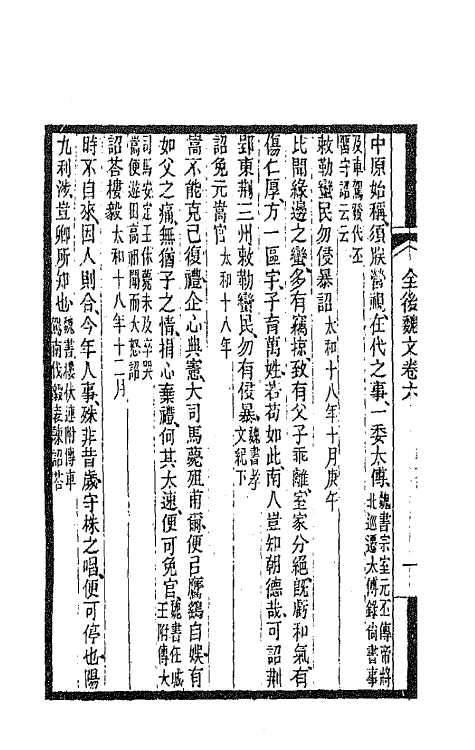 全後魏文卷六
中原始稱須朕營視在代之事一委太傅魏書宗室元丕傳帝將北巡遷太傅錄尚書事
及車駕發代丕留守詔云云
敕勒蠻民勿侵暴詔太和十八年十月庚午
比聞緣邊之蠻多有竊掠致有父子乖離室家分絕旣虧和氣有
傷仁厚方一區宇子育萬姓若苟如此南人豈知朝德哉可詔荆
郢東荆三州敕勒蠻民勿有侵暴魏書孝文紀下
詔免元嵩官太和十八年
嵩不能克己復禮企心典憲大司馬薨殂甫爾便以鷹鷂自娛有
如父之痛無猶子之情捐心棄禮何其太速便可免官魏書任城王附傳大
司馬安定王休薨未及卒哭嵩便遊田高祖聞而大怒詔
詔荅樓毅太和十八年十二月
時不自來因人則合今年人事殊非昔歲守株之唱便可停也陽
九利涉豈卿所知也魏書樓伏連附傳車駕南伐毅表諫詔荅